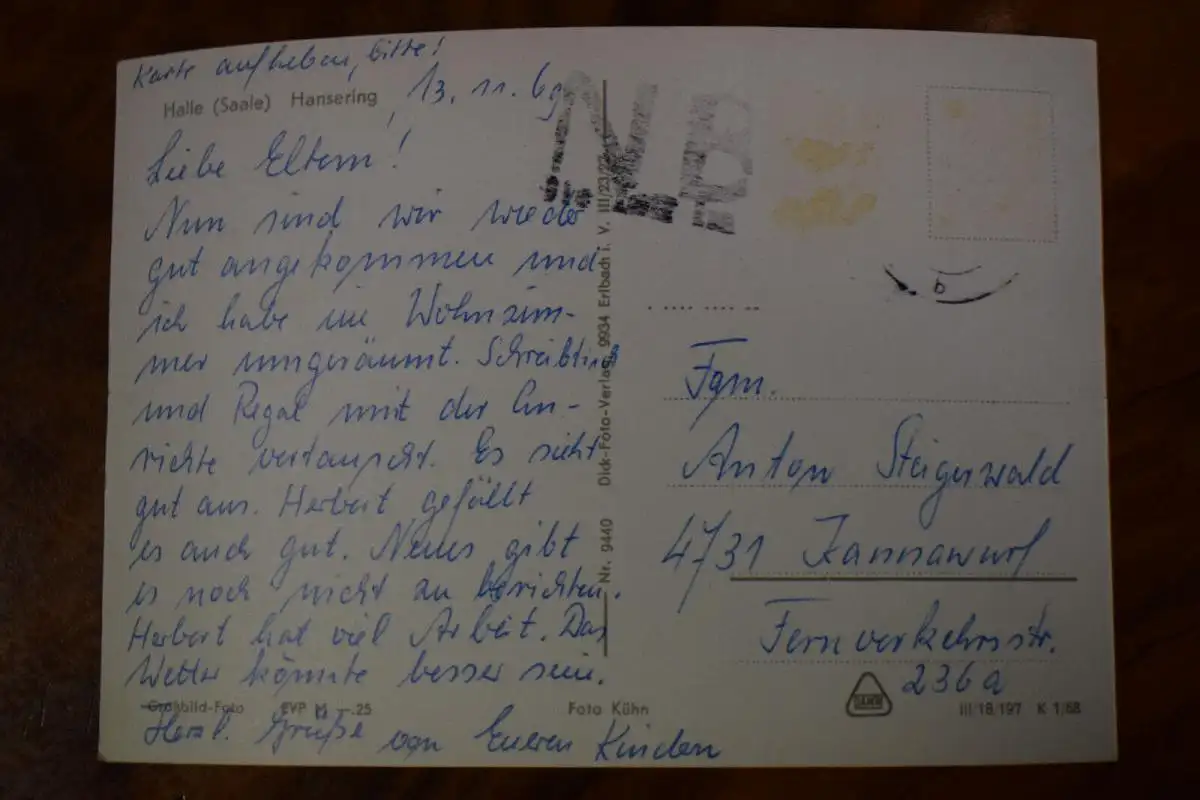 Karte aufheben, bitte!
Halle (Saale) Hansering
13. 11. 69
Liebe Eltern!
Nun sind wir wieder
gut angekommen und
ich habe im Wohnzim-
mer umgeräumt. Schreibtisch
und Regal mit der An-
richte vertauscht. Es sieht
gut aus. Herbert gefällt
es auch gut. Neues gibt
es noch nicht zu berichten.
Herbert hat viel Arbeit. Das
Wetter könnte besser sein.
Herzl. Grüße von Eueren Kindern
Großbild-Foto EVP M -.25
Foto Kühn
Nr. 9440 Dick-Foto-Verlag, 9934 Erlbach i. V. III/23/23
Fam.
Anton Steigerwald
4731 Kannawurf
Fernverkehrsstr.
236a
III/18/197 K 1/68
b